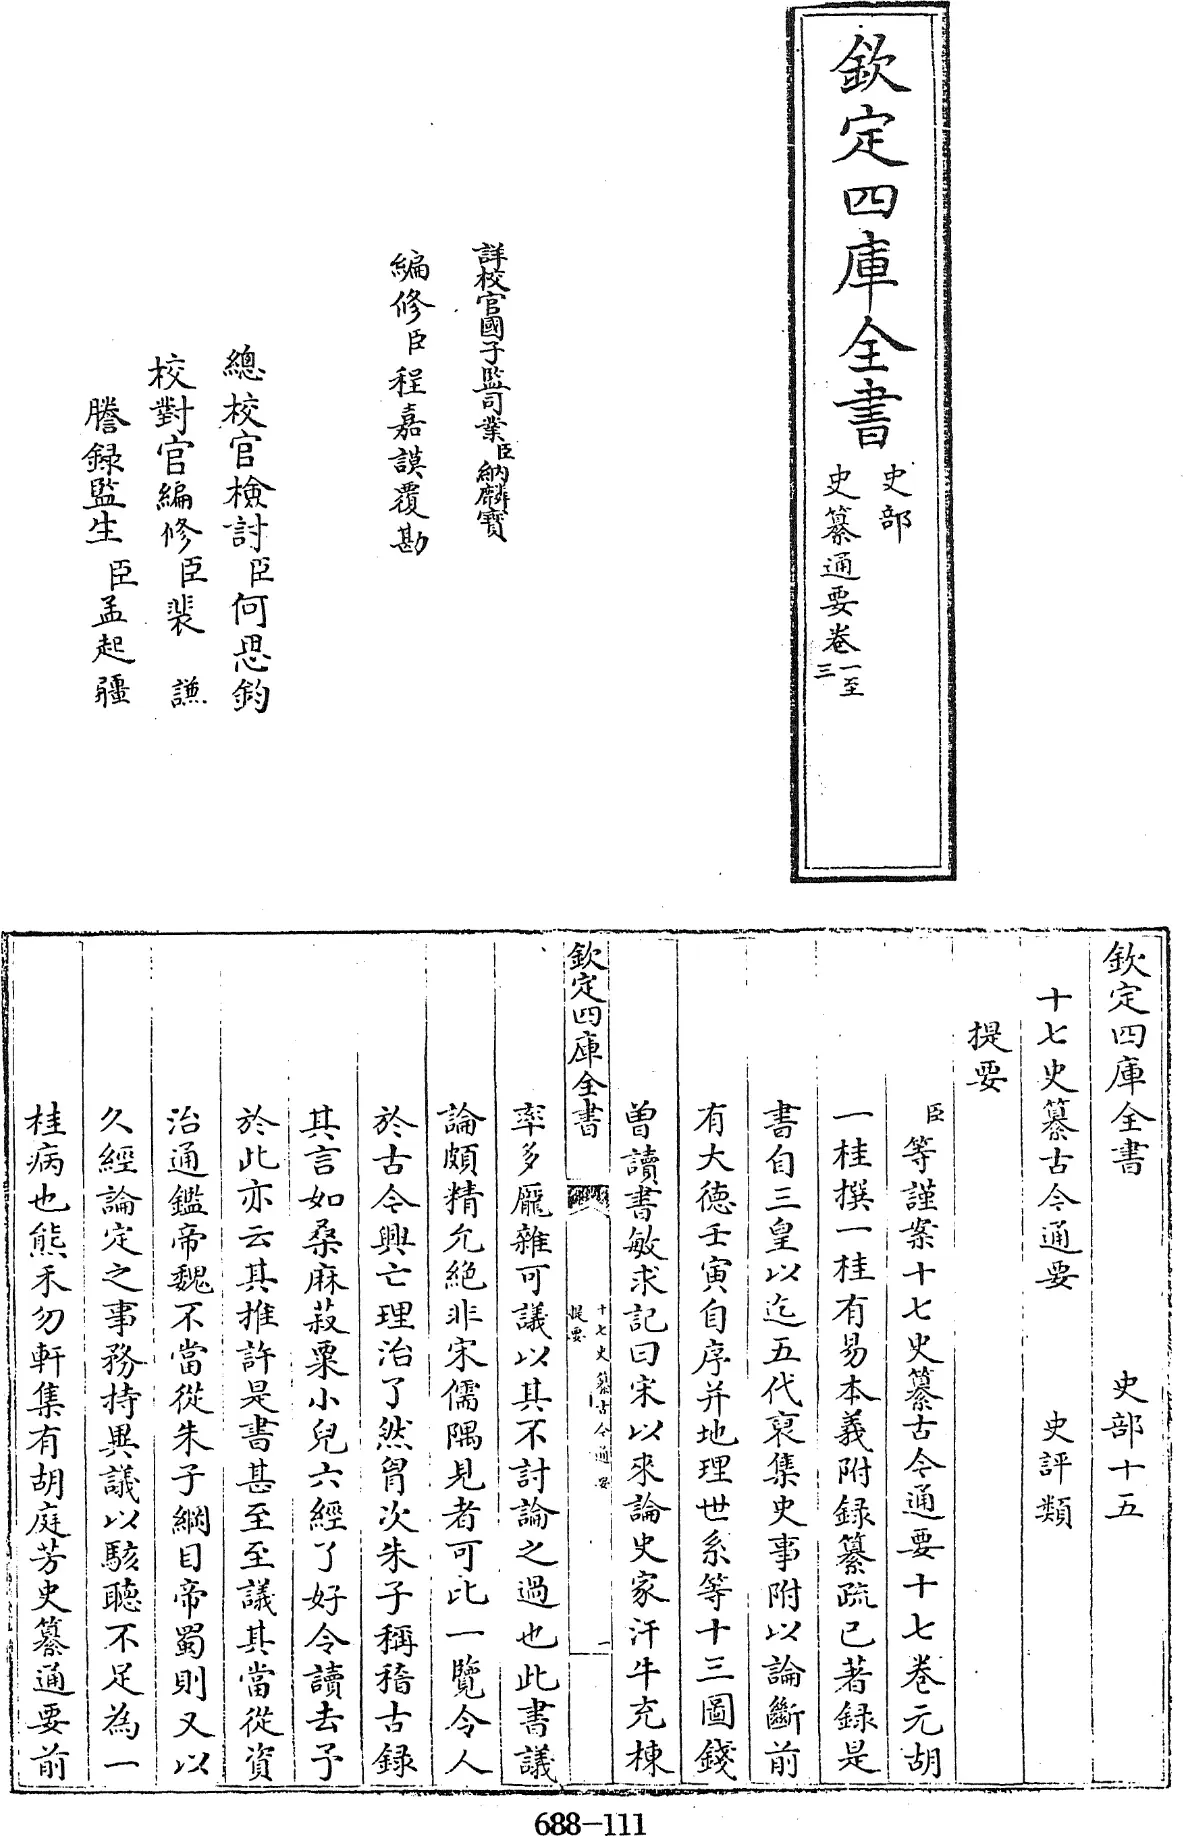 欽定四庫全書
史部
史纂通要卷一至三
詳校官國子監司業臣納麟寶
編修臣程嘉謨覆勘
總校官檢討臣何思鈞
校對官編修臣裴謙
謄録監生臣孟起疆
欽定四庫全書 史部十五
十七史纂古今通要 史評類
提要
臣等謹案十七史纂古今通要十七卷元胡
一桂撰一桂有易本義附録纂疏已著録是
書自三皇以迄五代裒集史事附以論斷前
有大德壬寅自序并地理世系等十三圖錢
曽讀書敏求記曰宋以來論史家汗牛充棟
欽定四庫全書 十七史纂古今通要 提要 一
率多龎雜可議以其不討論之過也此書議
論頗精允絶非宋儒隅見者可比一覽令人
於古今興亡理治了然胷次朱子稱稽古録
其言如桑麻菽粟小兒六經了好令讀去予
於此亦云其推許是書甚至至議其當從資
治通鑑帝魏不當從朱子綱目帝蜀則又以
久經論定之事務持異議以駭聽不足為一
桂病也熊禾勿軒集有胡庭芳史纂通要前
688-111